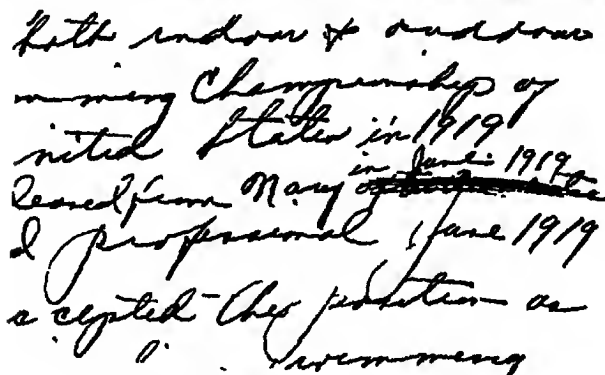 both indoor & outdoor
mming Championship of
nited States in 1919
in June 1919
leased from Navy
d professional June 1919
ccepted the position as
swimming